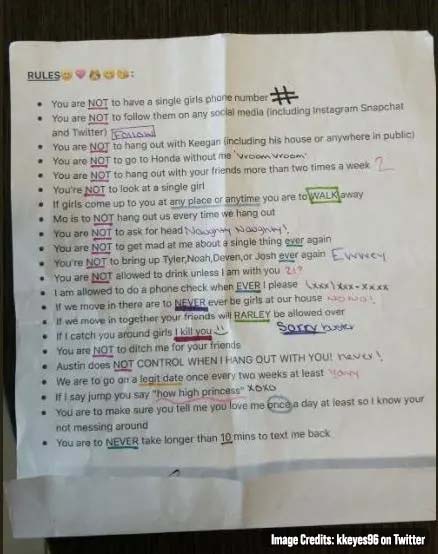 RULES😊💗👸😊😘:
• You are NOT to have a single girls phone number #
• You are NOT to follow them on any social media (including Instagram Snapchat
and Twitter) Follow
• You are NOT to hang out with Keegan (including his house or anywhere in public)
• You are NOT to go to Honda without me 'Vroom Vroom'
• You are NOT to hang out with your friends more than two times a week 2
• You're NOT to look at a single girl
• If girls come up to you at any place or anytime you are to WALK away
• Mo is to NOT hang out us every time we hang out
• You are NOT to ask for head Naughty Naughty!
• You are NOT to get mad at me about a single thing ever again
• You're NOT to bring up Tyler,Noah,Deven,or Josh ever again Ewwey
• You are NOT allowed to drink unless I am with you 21?
• I am allowed to do a phone check when EVER I please (xxx)xxx-xxxx
• If we move in there are to NEVER ever be girls at our house NoNo!
• If we move in together your friends will RARLEY be allowed over
• If I catch you around girls I kill you Sorry buster
• You are NOT to ditch me for your friends
• Austin does NOT CONTROL WHEN I HANG OUT WITH YOU! never!
• We are to go on a legit date once every two weeks at least
• If I say jump you say "how high princess" XOXO
• You are to make sure you tell me you love me once a day at least so I know your
not messing around
• You are to NEVER take longer than 10 mins to text me back
Image Credits: kkeyes96 on Twitter